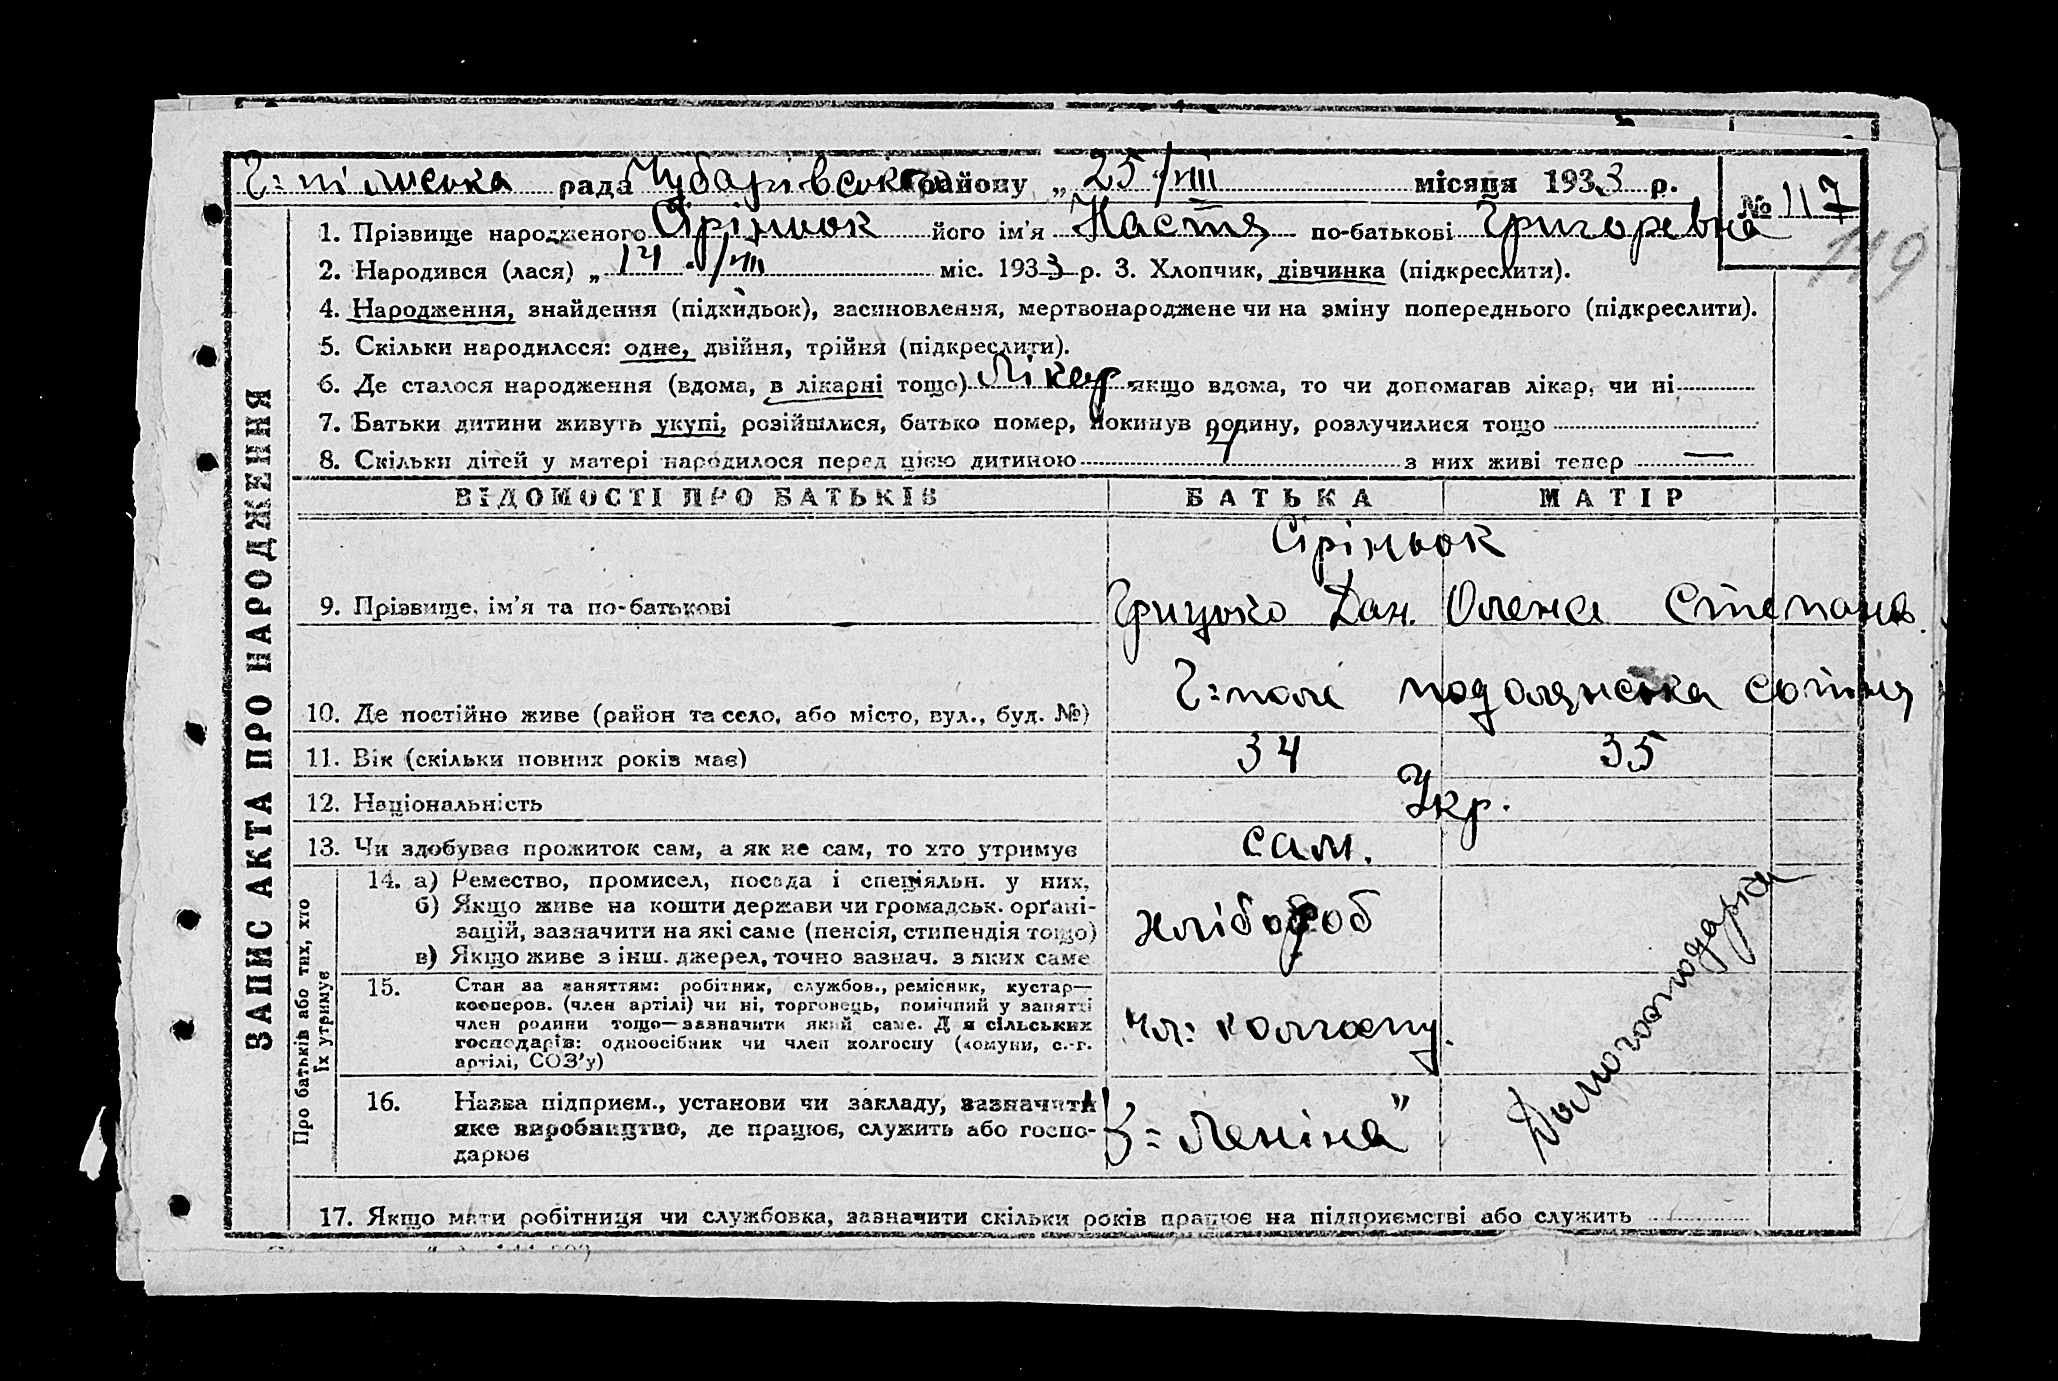 Г=пілльська рада Чубарівського району „ 25 " / VIII місяця 1933 р.
№ 117
119
1. Прізвище народженого Сіріньок його ім'я Настя по-батькові Григоревна
2. Народився (лася) „ 14 " / VIII міс. 1933 р. 3. Хлопчик, дівчинка (підкреслити).
4. Народження, знайдення (підкидьок), засиновлення, мертвонароджене чи на зміну попереднього (підкреслити).
5. Скільки народилося: одне, двійня, трійня (підкреслити).
6. Де сталося народження (вдома, в лікарні тощо) Лікар якщо вдома, то чи допомагав лікар, чи ні
7. Батьки дитини живуть укупі, розійшлися, батько помер, покинув родину, розлучилися тощо
8. Скільки дітей у матері народилося перед цією дитиною 4 з них живі тепер —
ВІДОМОСТІ ПРО БАТЬКІВ БАТЬКА МАТІР
Сіріньок
9. Прізвище, ім'я та по-батькові Грицько Дан. Олена Степанів.
10. Де постійно живе (район та село, або місто, вул., буд. №) Г=полі подолянська сотня
11. Вік (скільки повних років має) 34 35
12. Національність Укр.
13. Чи здобуває прожиток сам, а як не сам, то хто утримує сам.
14. а) Ремество, промисел, посада і спеціяльн. у них,
б) Якщо живе на кошти держави чи громадськ. орґані-
зацій, зазначити на які саме (пенсія, стипендія тощо)
в) Якщо живе з інш. джерел, точно зазнач. з яких саме
хлібороб
15. Стан за заняттям: робітник, службов., ремісник, кустар—
кооперов. (член артілі) чи ні, торговець, помічний у занятті
член родини тощо—зазначити який саме. Для сільських
господарів: одноосібник чи член колгоспу (комуни, с.-г.
артілі, СОЗ'у)
чл: колгоспу.
16. Назва підприєм., установи чи закладу, зазначити
яке виробництво, де працює, служить або госпо-
дарює
З= Леніна"
Домогосподарка
17. Якщо мати робітниця чи службовка, зазначити скільки років працює на підприємстві або служить
ЗАПИС АКТА ПРО НАРОДЖЕННЯ
Про батьків або тих, хто
їх утримує